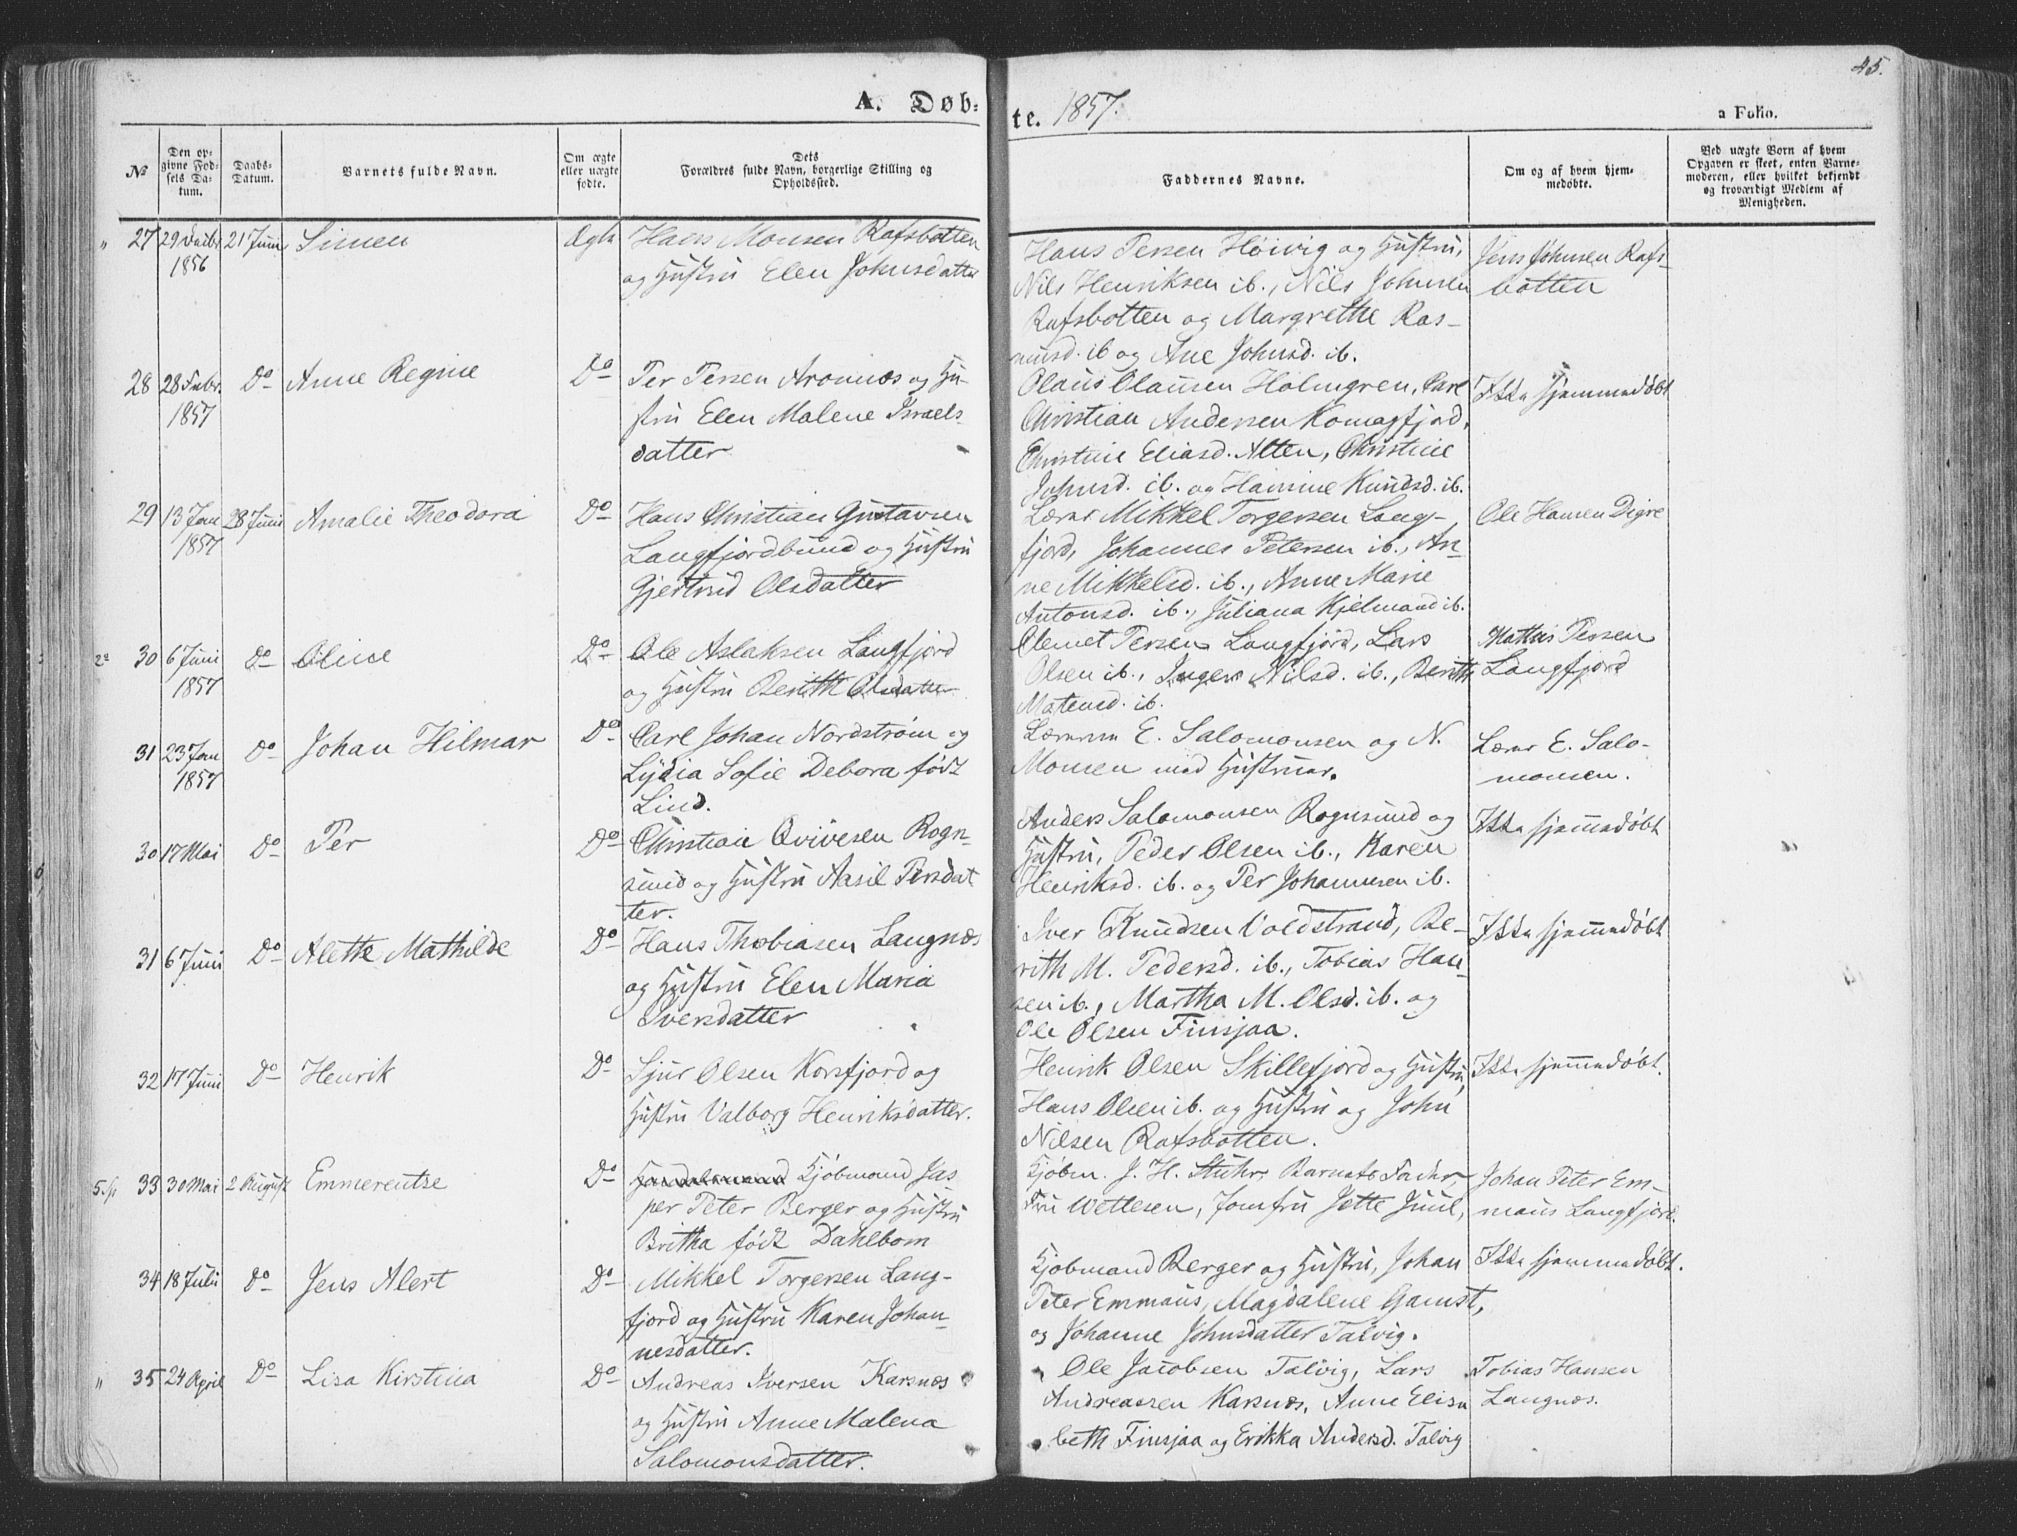 45.
A. Døb-
te. 1857.
a Folio.
No
Den op-
givne Fød-
sels Da-
tum.
Daabs-
Datum.
Barnets fulde Navn.
Om ægte
eller uægte
fødte.
Dets
Forældres fulde Navn, borgerlige Stilling og
Opholdssted.
Faddernes Navne.
Om og af hvem hjem-
medøbte.
Ved uægte Born af hvem
Opgaven er skeet, enten Barne-
moderen, eller hvilket bekjendt
og troværdigt Medlem af
Menigheden.
" 27 29 Decbr 21 Juni Simen Ægte Hans Monsen Rafsbotten
1856 og Hustru Elen Johnsdatter
Hans Persen Høivig og Hustru,
Nils Henriksen ib., Nils Johnsen
Rafsbotten og Margrethe Ras-
musd. ib og Ane Johnsd. ib.
Jens Johnsen Rafs-
botten
28 28 Febr. Do Anne Regine Do Per Persen Aronnæs og Hu-
1857 stru Elen Malene Israels-
datter
Olaus Olausen Holmgren, Carl
Christian Andersen Komagfjord,
Christine Eliasd. Alten, Christine
Johnsd. ib. og Hansine Knudsd. ib.
Ikke hjemmedøbt
29 13 Jan 28 Juni Amalie Theodora Do Hans Christian Gustavsen
1857 Langfjordbund og Hustru
Gjertrud Olsdatter
Lærer Mikkel Torgersen Lang-
fjord, Johannes Petersen ib., An-
ne Mikkelsd. ib., Anne Marie
Antonsd. ib., Juliana Kjelmand ib.
Ole Hansen Digre
30 6 Juni Do Oline Do Ole Aslaksen Langfjord
1857 og Hustru Berith Olsdatter
Clemet Persen Langfjord, Lars
Olsen ib., Inger Nilsd. ib., Berith
Matensd. ib.
Mathis Persen
Langfjord
31 23 Jan Do Johan Hilmar Do Carl Johan Nordstrøm og
1857 Lydia Sofie Debora født
Lind.
Lærerne E. Salomonsen og N.
Monsen med Hustruer.
Lærer E. Salo-
monsen.
30 17 Mai Do Per Do Christian Qvivesen Rogn-
sund og Hustru Aasil Persdat
ter.
Anders Salomonsen Rognsund og
Hustru, Peder Olsen ib., Karen
Henriksd. ib. og Per Johannesen ib.
Ikke hjemmedøbt
31 6 Juni Do Alette Mathilde Do Hans Thobiasen Langnæs
og Hustru Elen Maria
Iversdatter
Iver Knudsen Voldstrand, Be-
rith M. Pedersd. ib., Tobias Han-
sen ib., Martha M. Olsd. ib. og
Ole Olsen Finsjaa.
Ikke hjemmedøbt
32 17 Juni Do Henrik Do Sjur Olsen Korsfjord og
Hustru Valborg Henriksdatter.
Henrik Olsen Skillefjord og Hustru,
Hans Olsen ib. og Hustru og John
Nilsen Rafsbotten.
Ikke hjemmedøbt.
33 30 Mai 2 August Emmerentse Do Kjøbmand Jas
per Peter Berger og Hustru
Britha født Dahlbom
Kjøbm. J. H. Stuhr, Barnets Fader,
Fru Wetlesen, Jomfru Jette Juul,
Johan Peter Em-
maus Langfjord.
34 18 Juli Do Jens Alert Do Mikkel Torgersen Lang-
fjord og Hustru Karen Johan-
nesdatter.
Kjøbmand Berger og Hustru, Johan
Peter Emmaus, Magdalene Gamst,
og Johanne Johnsdatter Talvig.
Ikke hjemmedøbt.
" 35 24 April Do Lisa Kirstina Do Andreas Iversen Karsnæs
og Hustru Anne Malena
Salomonsdatter.
Ole Jacobsen Talvig, Lars
Andreassen Karsnæs, Anne Elisa
beth Finsjaa og Erikka Andersd. Talvig
Tobias Hansen
Langnæs.